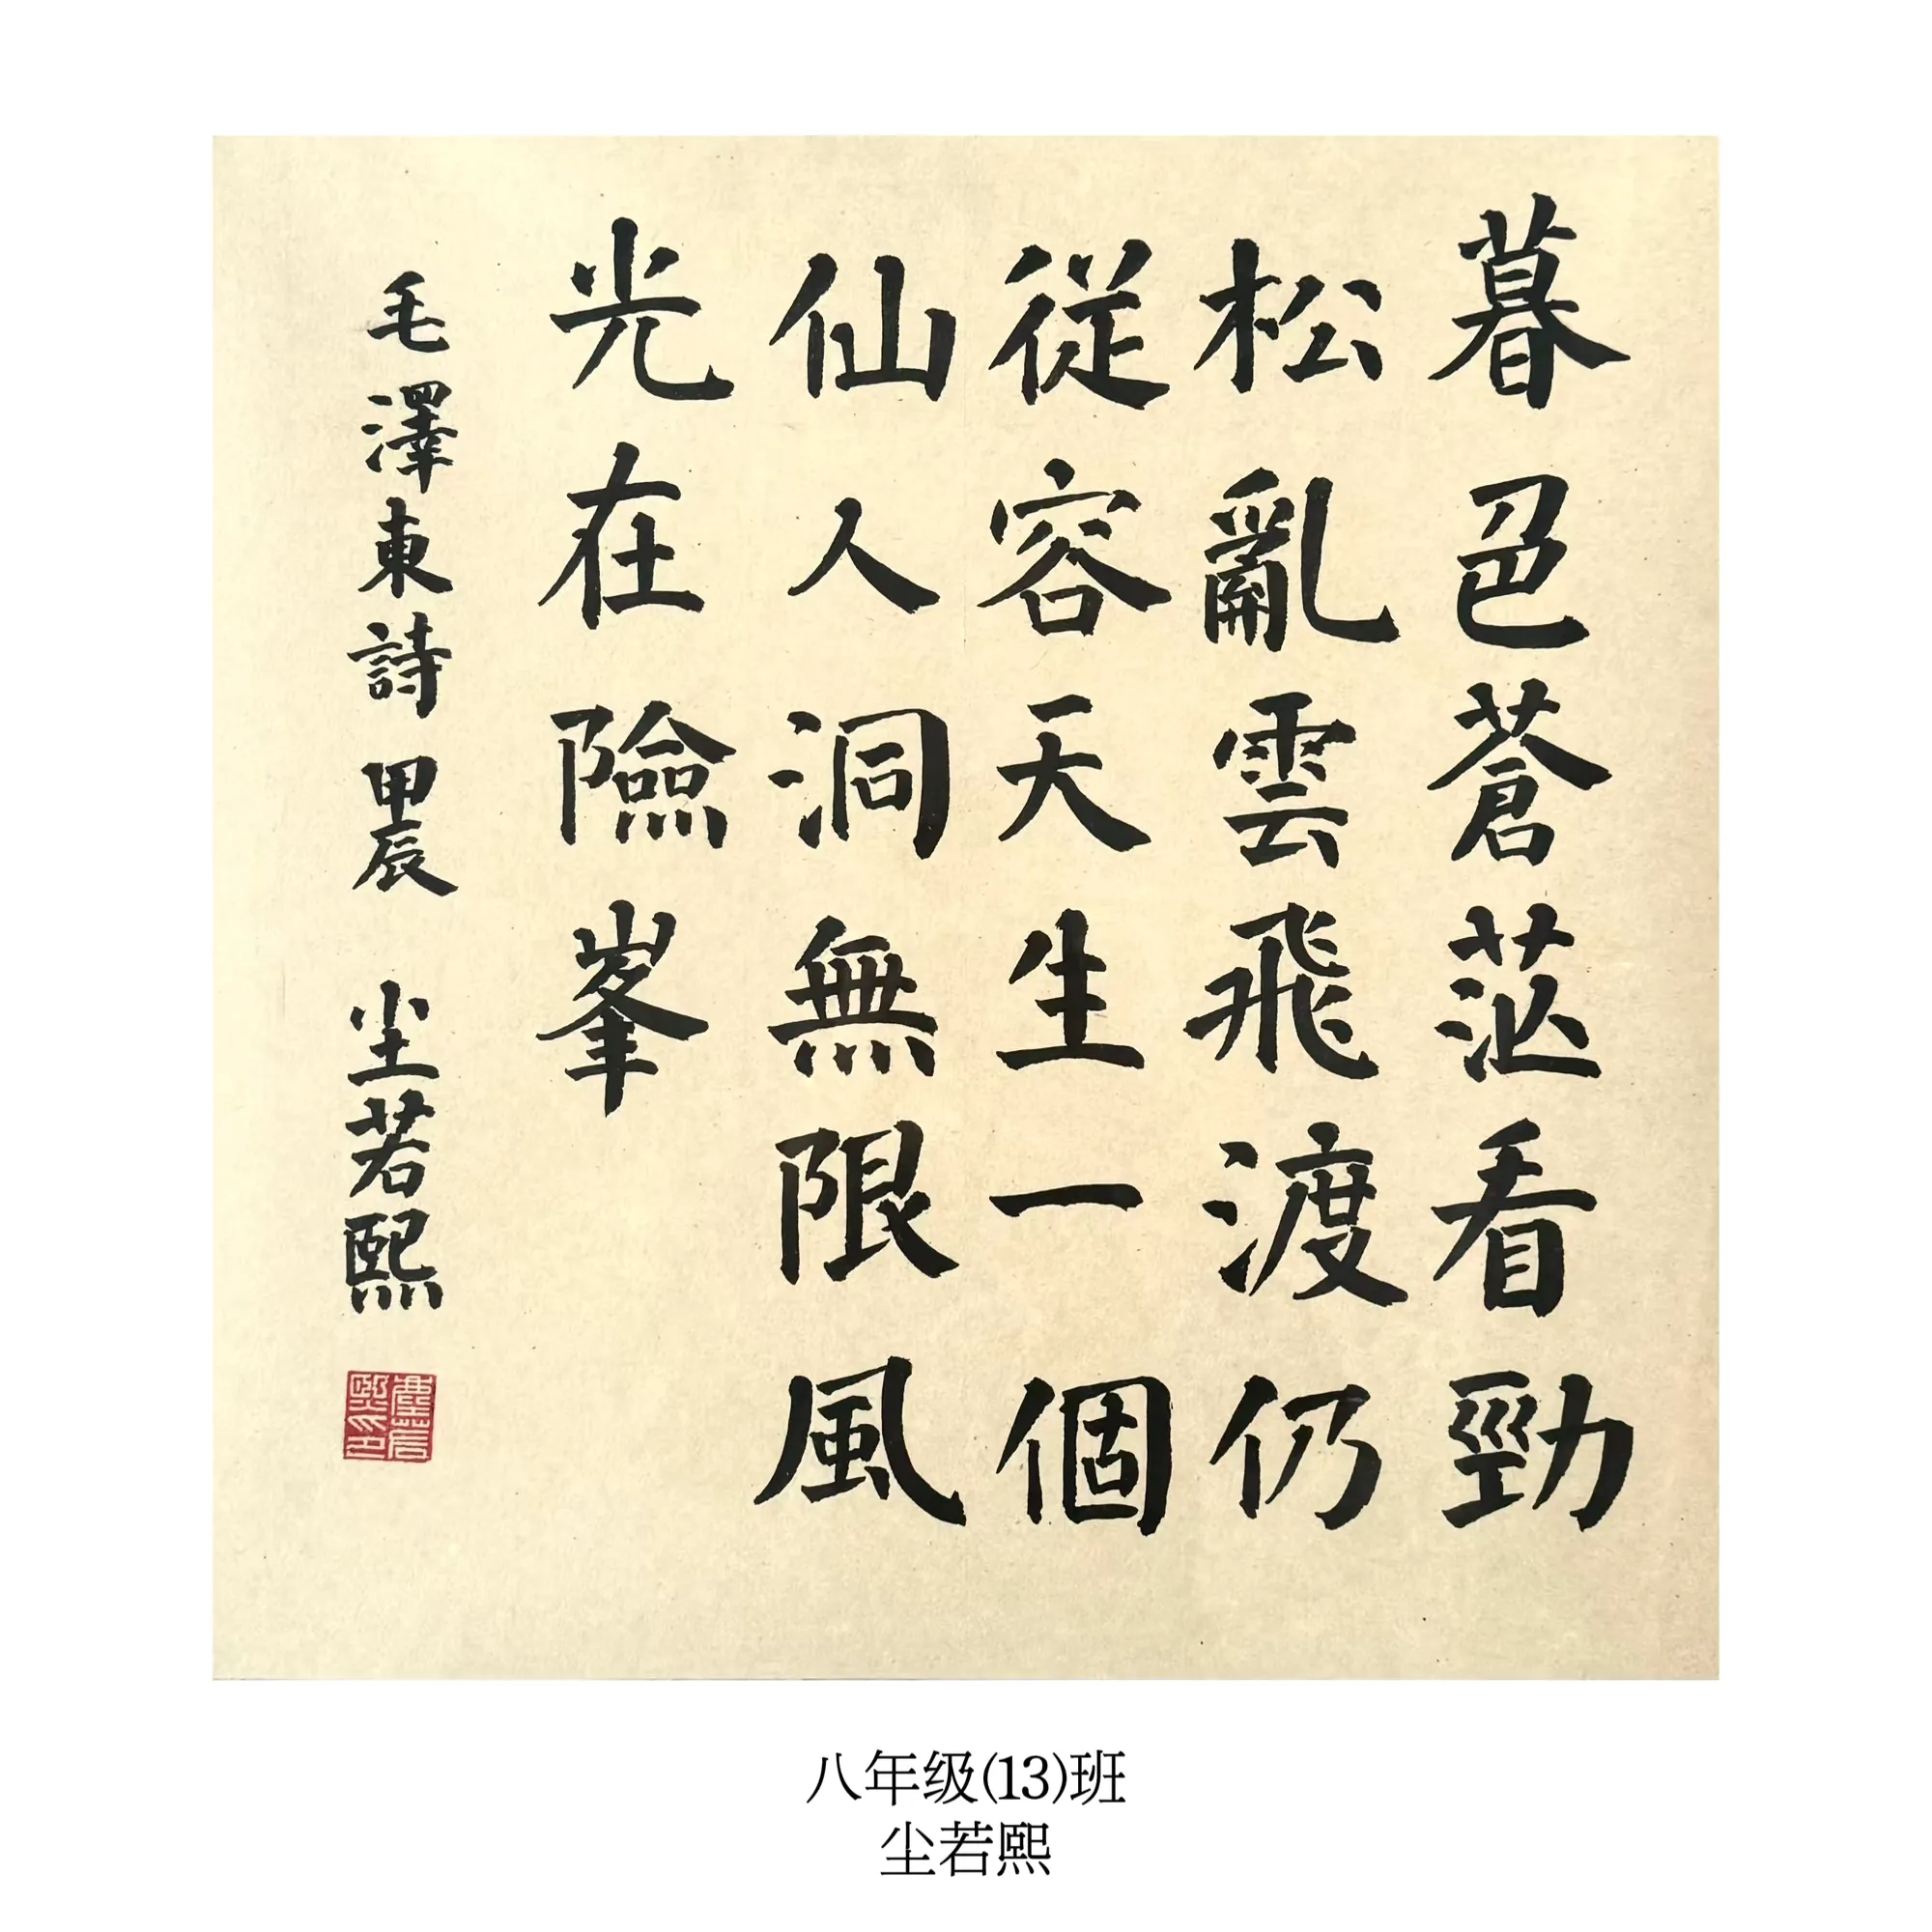 暮色蒼茫看勁
松亂雲飛渡仍
從容天生一個
仙人洞無限風
光在險峯
毛澤東詩 甲辰 尘若熙
塵若熙印
八年级(13)班
尘若熙